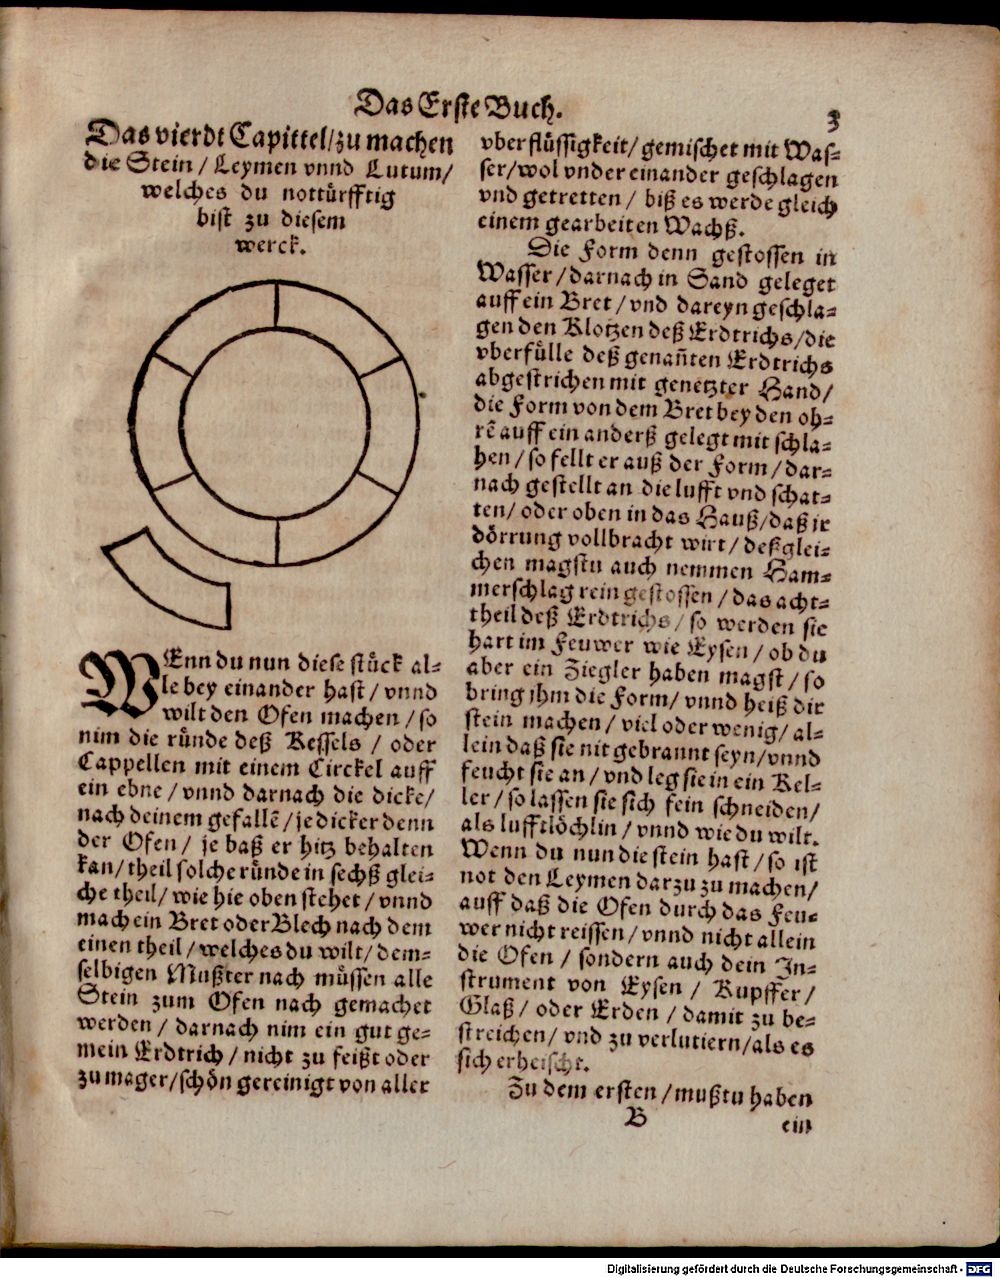 Das Erste Buch.
3
Das vierdt Capittel/zu machen
die Stein / Leymen vnnd Lutum/
welches du nottürfftig
bist zu diesem
werck.
WEnn du nun diese stück al=
le bey einander hast / vnnd
wilt den Ofen machen / so
nim die ründe deß Kessels / oder
Cappellen mit einem Circkel auff
ein ebne / vnnd darnach die dicke/
nach deinem gefallẽ / je dicker denn
der Ofen / je baß er hitz behalten
kan/ theil solche ründe in sechß glei=
che theil / wie hie oben stehet / vnnd
mach ein Bret oder Blech nach dem
einen theil / welches du wilt / dem=
selbigen Mußter nach müssen alle
Stein zum Ofen nach gemachet
werden / darnach nim ein gut ge=
mein Erdtrich / nicht zu feißt oder
zu mager/schön gereinigt von aller
vberflüssigkeit/ gemischet mit Was=
ser/wol vnder einander geschlagen
vnd getretten / biß es werde gleich
einem gearbeiten Wachß.
Die Form denn gestossen in
Wasser / darnach in Sand geleget
auff ein Bret / vnd dareyn geschla=
gen den Klotzen deß Erdtrichs/die
vberfülle deß genañten Erdtrichs
abgestrichen mit genetzter Hand/
die Form von dem Bret bey den oh=
rẽ auff ein anderß gelegt mit schla=
hen / so fellt er auß der Form / dar=
nach gestellt an die lufft vnd schat=
ten/ oder oben in das Hauß/daß jr
dörrung vollbracht wirt / deßglei=
chen magstu auch nemmen Ham=
merschlag rein gestossen / das acht=
theil deß Erdtrichs / so werden sie
hart im Feuwer wie Eysen / ob du
aber ein Ziegler haben magst / so
bring jhm die Form / vnnd heiß dir
stein machen / viel oder wenig/ al=
lein daß sie nit gebrannt seyn/vnnd
feucht sie an / vnd leg sie in ein Kel=
ler / so lassen sie sich fein schneiden/
als lufftlöchlin / vnnd wie du wilt.
Wenn du nun die stein hast / so ist
not den Leymen darzu zu machen/
auff daß die Ofen durch das Feu=
wer nicht reissen / vnnd nicht allein
die Ofen / sondern auch dein In=
strument von Eysen / Kupffer /
Glaß / oder Erden / damit zu be=
streichen / vnd zu verlutiern/als es
sich erheischt.
Zu dem ersten / mußtu haben
B
ein
Digitalisierung gefördert durch die Deutsche Forschungsgemeinschaft - DFG